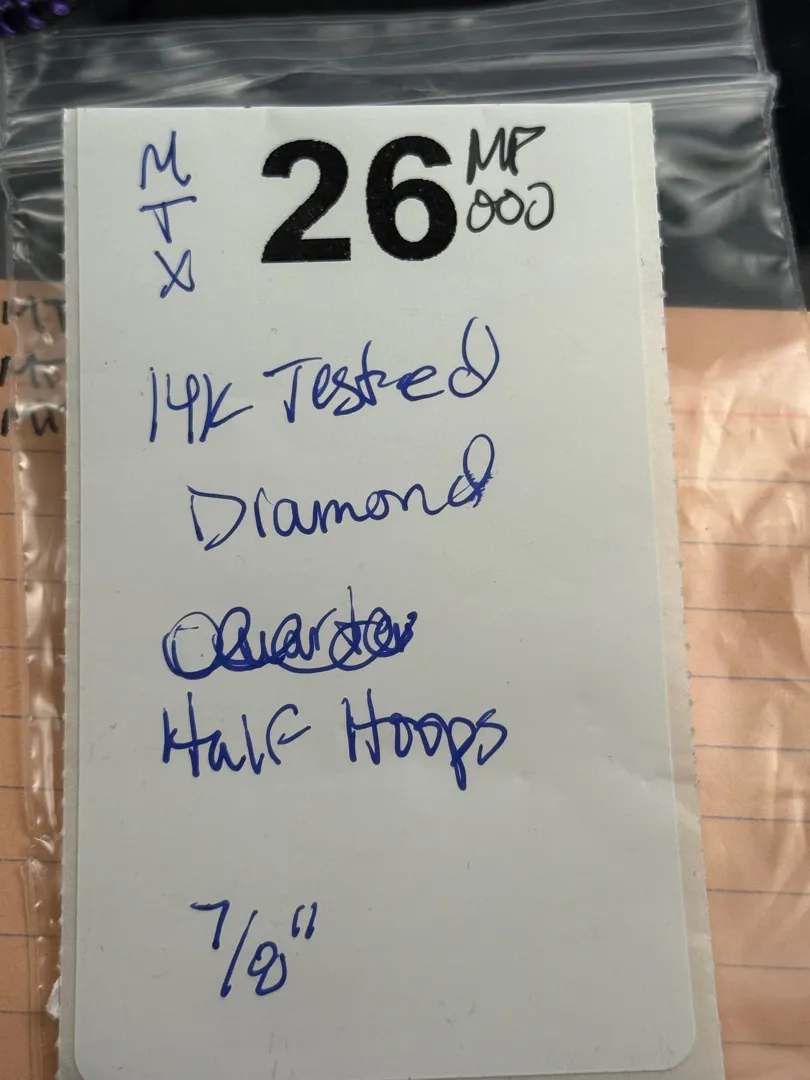 M
T
X
26
MP
000
14K Tested
Diamond
Quarter
Half Hoops
7/8"